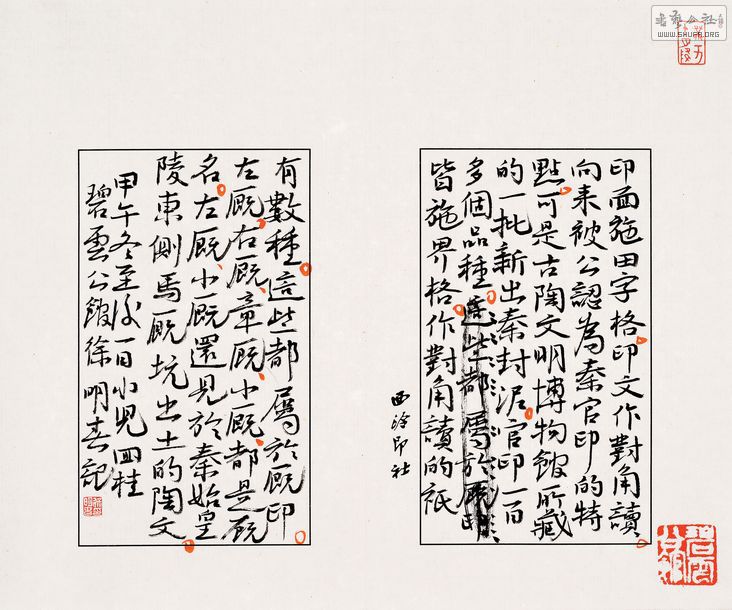 書法公社
WWW.SHUFA.ORG
印面施田字格印文作對角讀
向来被公認為秦官印的特
點可是古陶文明博物館所藏
的一批新出秦封泥官印一百
多個品種這些都屬於厩印
皆施界格作對角讀的祇
西泠印社
有數種這些都屬於厩印
左厩右厩章厩小厩都是厩
名左厩小厩還見於秦始皇
陵東側馬厩坑出土的陶文
甲午冬至後一日小兒四桂
碧雲公館徐明春記
碧雲公館